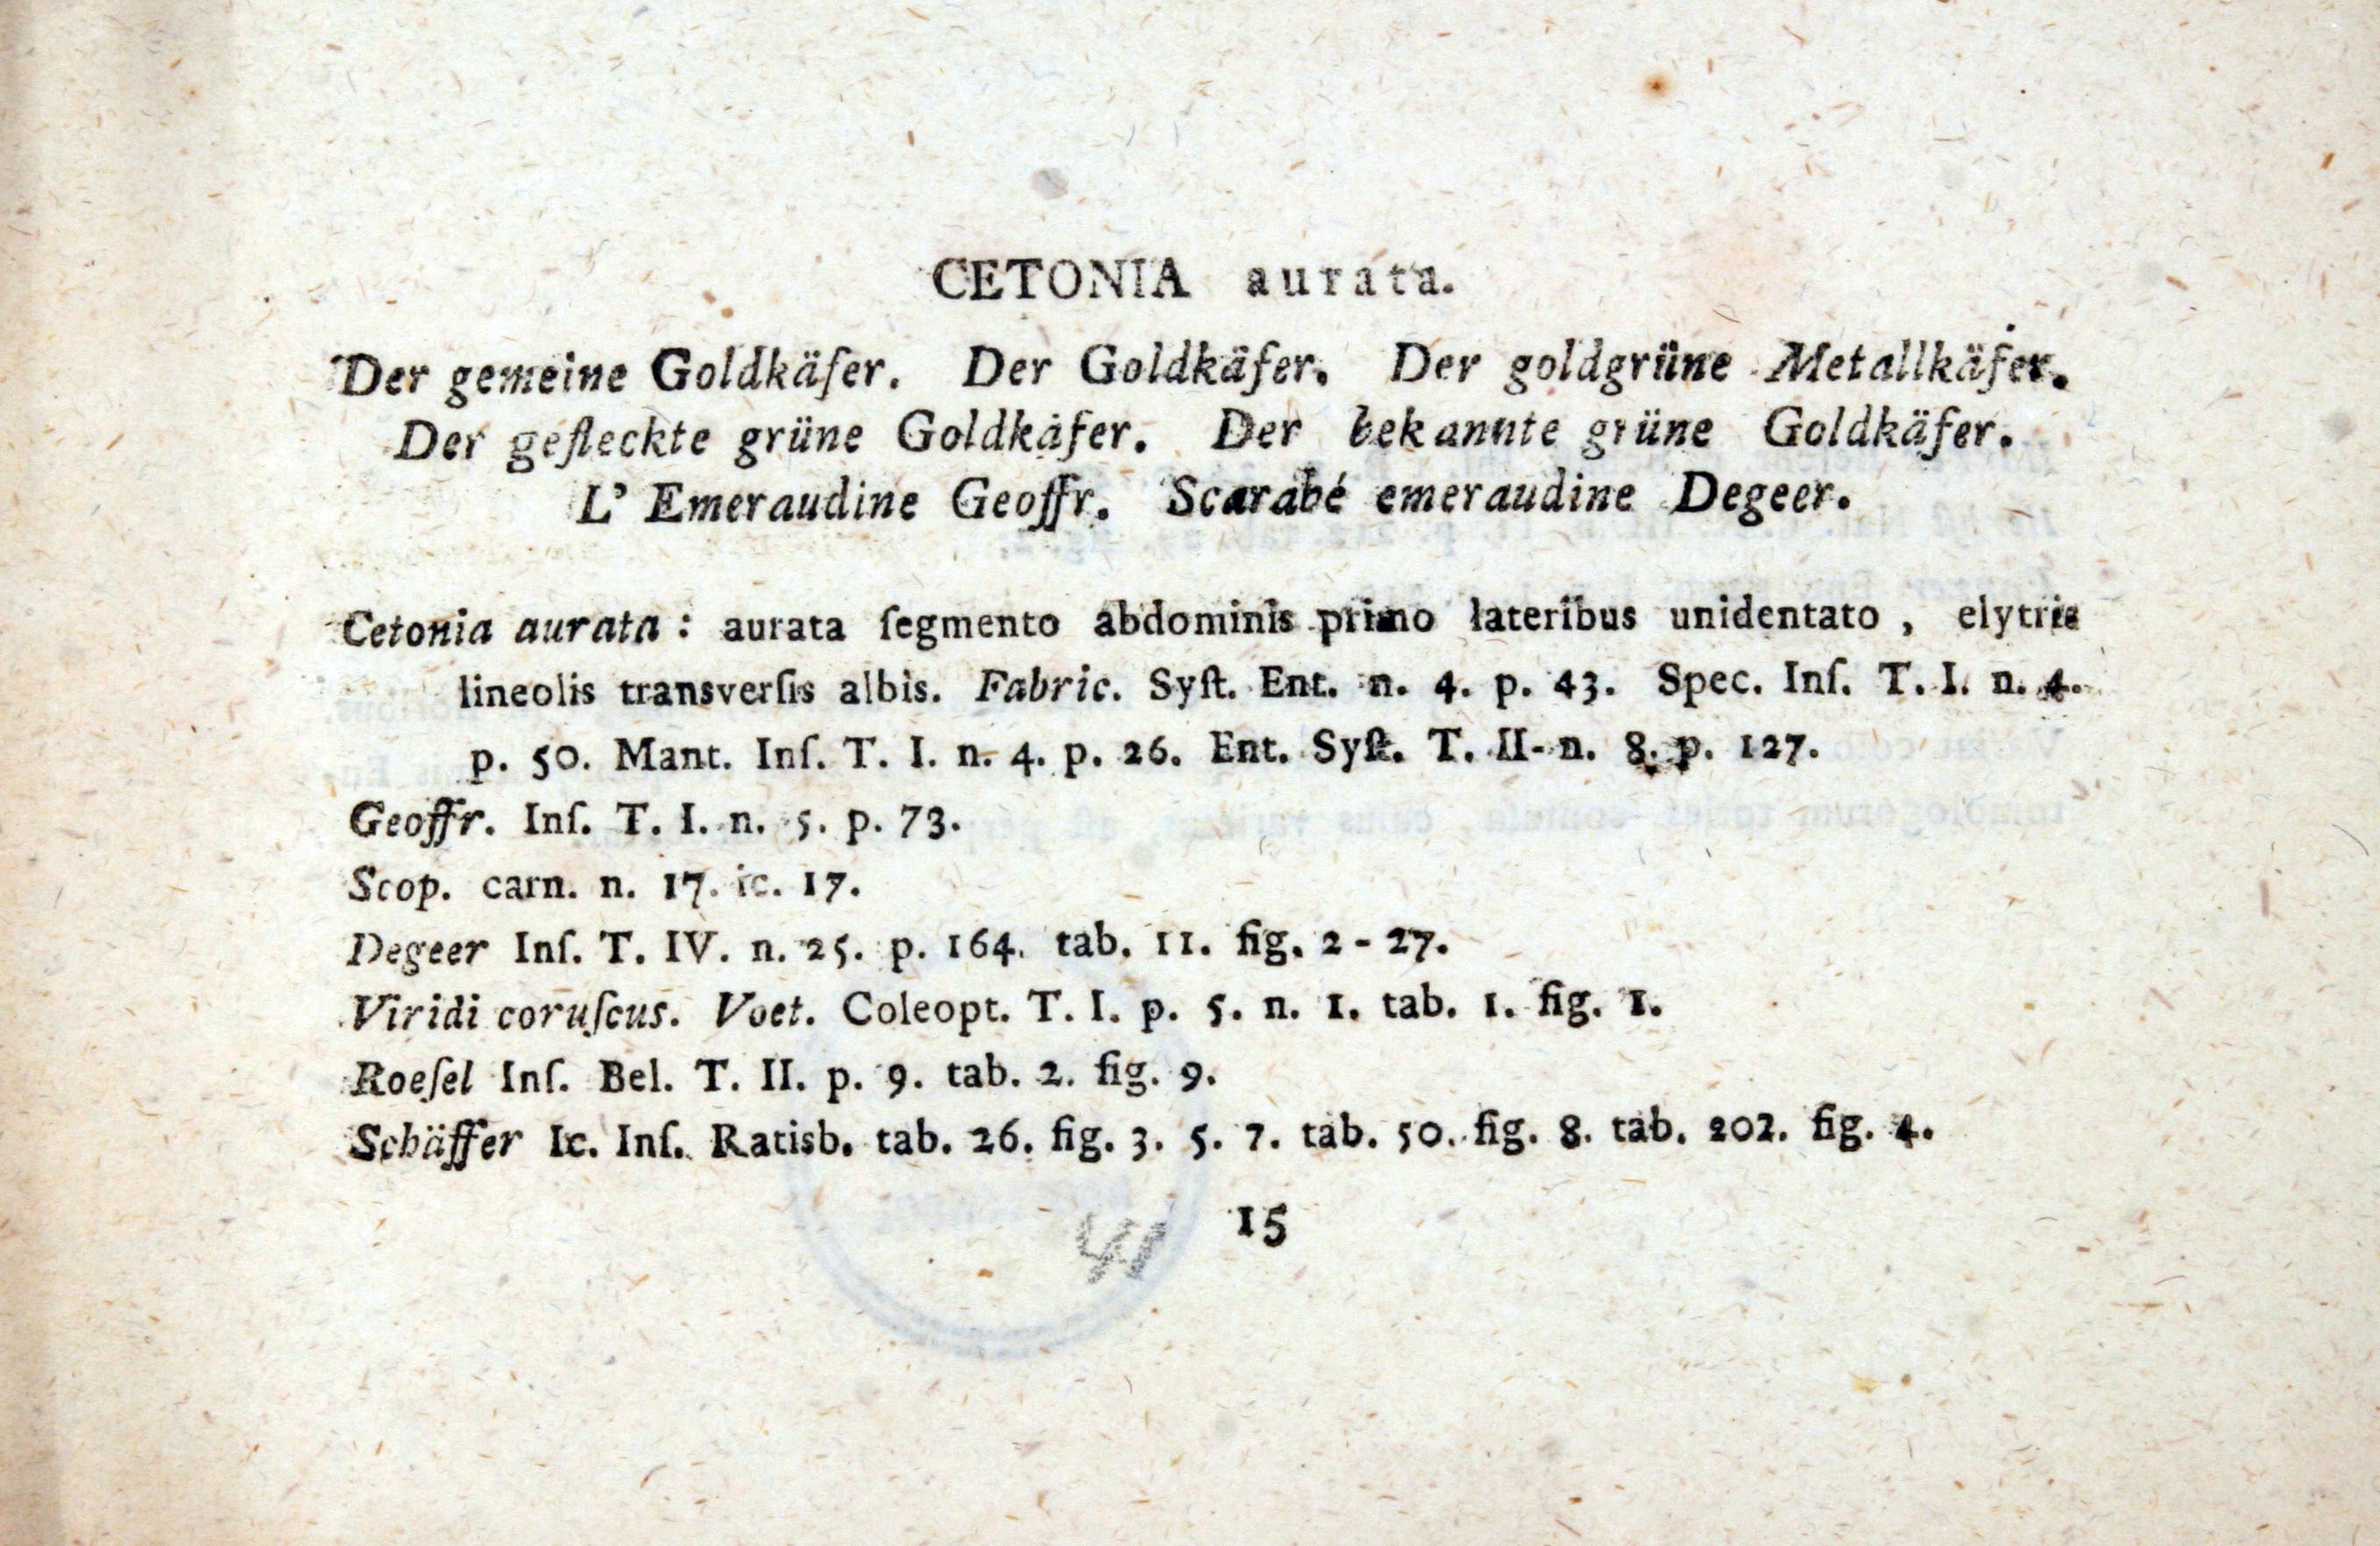 CETONIA aurata.
Der gemeine Goldkäſer. Der Goldkäfer. Der goldgrüne Metallkäfer.
Der gefleckte grüne Goldkäfer. Der bekannte grüne Goldkäfer.
L' Emeraudine Geoffr. Scarabé emeraudine Degeer.
Cetonia aurata: aurata ſegmento abdominis primo lateribus unidentato, elytris
lineolis transverſis albis. Fabric. Syſt. Ent. n. 4. p. 43. Spec. Inſ. T. I. n. 4.
p. 50. Mant. Inſ. T. I. n. 4. p. 26. Ent. Syſt. T. II- n. 8. p. 127.
Geoffr. Inſ. T. I. n. 5. p. 73.
Scop. carn. n. 17. ic. 17.
Degeer Inſ. T. IV. n. 25. p. 164. tab. 11. fig. 2 - 27.
Viridi coruſcus. Voet. Coleopt. T. I. p. 5. n. 1. tab. 1. fig. 1.
Roeſel Inſ. Bel. T. II. p. 9. tab. 2. fig. 9.
Schäffer Ic. Inſ. Ratisb. tab. 26. fig. 3. 5. 7. tab. 50. fig. 8. tab. 202. fig. 4.
15